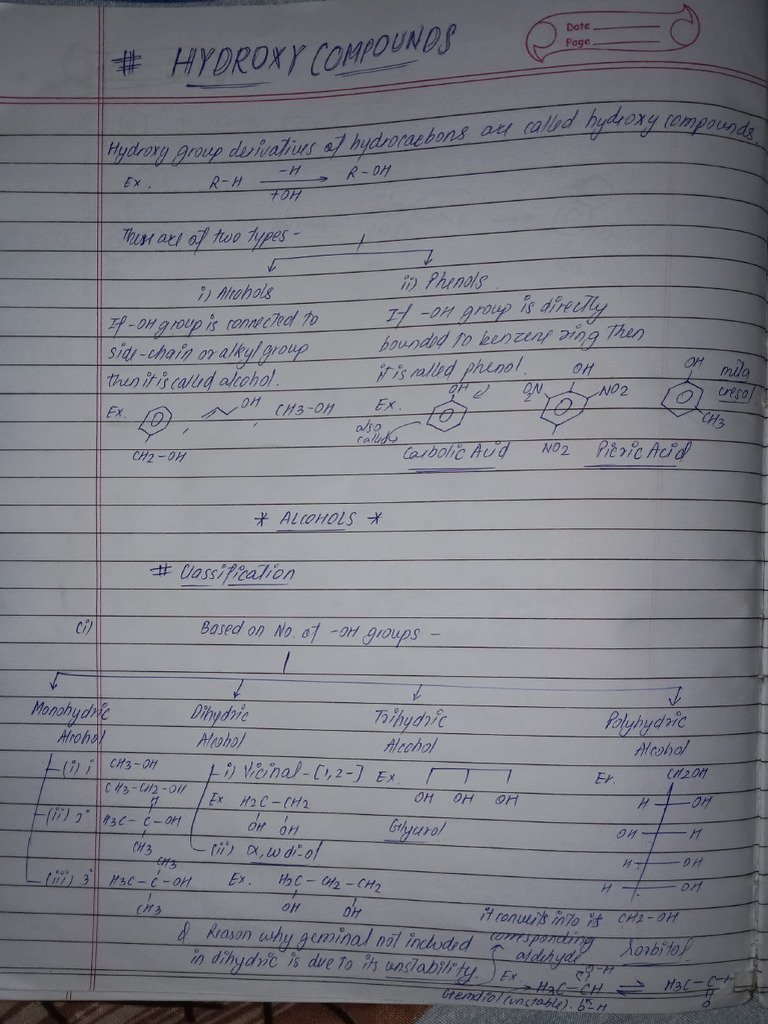 Date
Page
# HYDROXY COMPOUNDS
Hydroxy group derivatives of hydrocarbons are called hydroxy compounds.
Ex. R-H -H → +OH R-OH
These are of two types -
i) Alcohols
If -OH group is connected to
side-chain or alkyl group
then it is called alcohol.
Ex. CH2-OH , OH , CH3-OH
ii) Phenols
If -OH group is directly
bounded to benzene ring then
it is called phenol.
Ex. OH
also called
Carbolic Acid
OH O2N NO2 NO2
Picric Acid
OH CH3
meta
cresol
* ALCOHOLS *
# Classification
(i) Based on No. of -OH groups -
Monohydric
Alcohol
(i) 1° CH3-OH
CH3-CH2-OH
(ii) 2° H3C-C-OH H CH3
(iii) 3° H3C-C-OH CH3 CH3
Dihydric
Alcohol
i) Vicinal-[1,2-]
Ex. H2C-CH2
OH OH
(ii) α,ω di-ol
Ex. H2C-CH2-CH2
OH OH
Trihydric
Alcohol
Ex.
OH OH OH
Glycerol
Polyhydric
Alcohol
Ex. CH2OH
H OH
OH H
H OH
H OH
CH2-OH
Sorbitol.
Reason why geminal not included
in dihydric is due to its unstability.
it converts into its
corresponding
aldehyde
Ex
Gemdiol(unstable). H3C-CH O-H O-H ⇌ H3C-C-H O